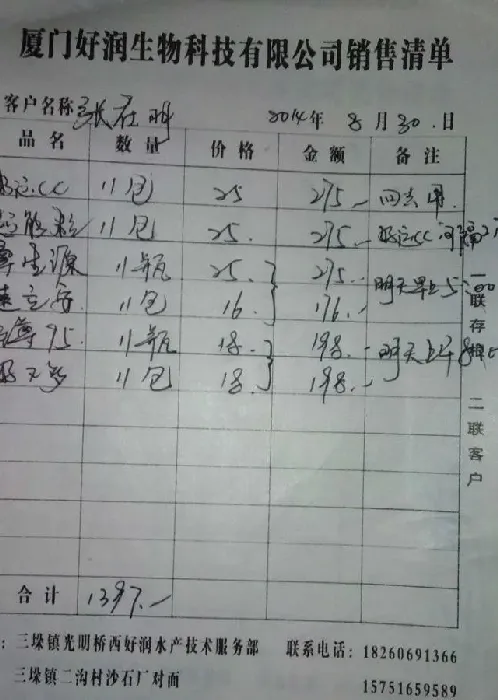 厦门好润生物科技有限公司销售清单
客户名称 张在 2014年 8月30.日
品名 数量 价格 金额 备注
CC 11包 25 275.- 回去用.
11包 25. 275.- CC
源 11瓶 25. 275.- 明天早上5:00
11包 16. 176.-
95. 11瓶 18. 198.- 明天上午
11包 18. 198.-
一联存根
二联客户
合计 1397.-
: 三垛镇光明桥西好润水产技术服务部 联系电话: 18260691366
三垛镇二沟村沙石厂对面 15751659589